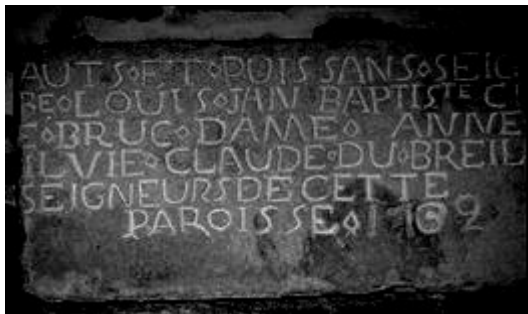 AUTS◊ET◊PUISSANS◊SEIG
BE◊LOUIS◊JAN BAPTISTE C
E◊BRUC◊DAME◊ ANNE
ILVIE◊CLAUDE◊DU◊BREIL
SEIGNEURS DE CETTE
PAROISSE◊